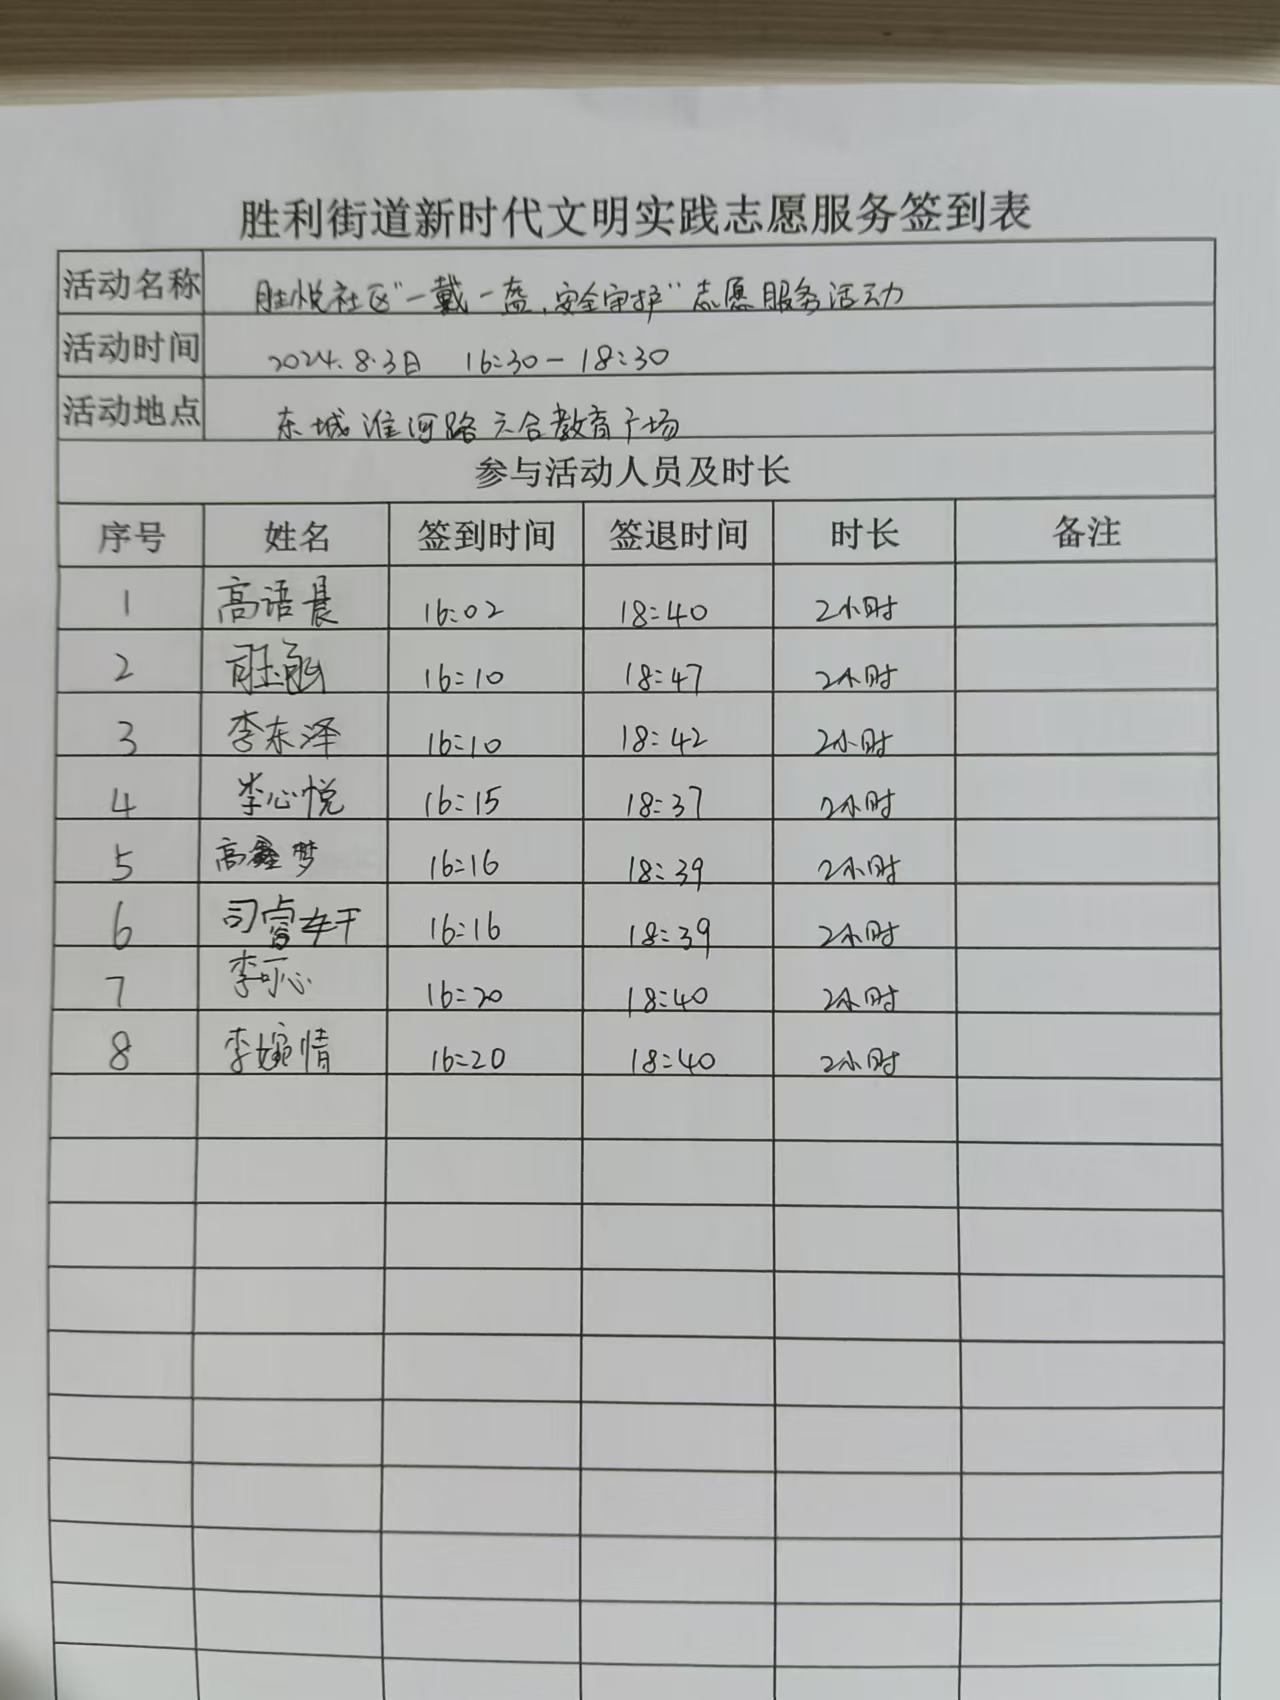 胜利街道新时代文明实践志愿服务签到表
活动名称 胜悦社区"一戴一盔,安全守护"志愿服务活动
活动时间 2024.8.3日 16:30-18:30
活动地点 东城淮河路六合教育广场
参与活动人员及时长
序号 姓名 签到时间 签退时间 时长 备注
1 高语晨 16:02 18:40 2小时
2 16:10 18:47 2小时
3 李东泽 16:10 18:42 2小时
4 李心悦 16:15 18:37 2小时
5 高鑫梦 16:16 18:39 2小时
6 司睿 16:16 18:39 2小时
7 李可心 16:20 18:40 2小时
8 李婉情 16:20 18:40 2小时